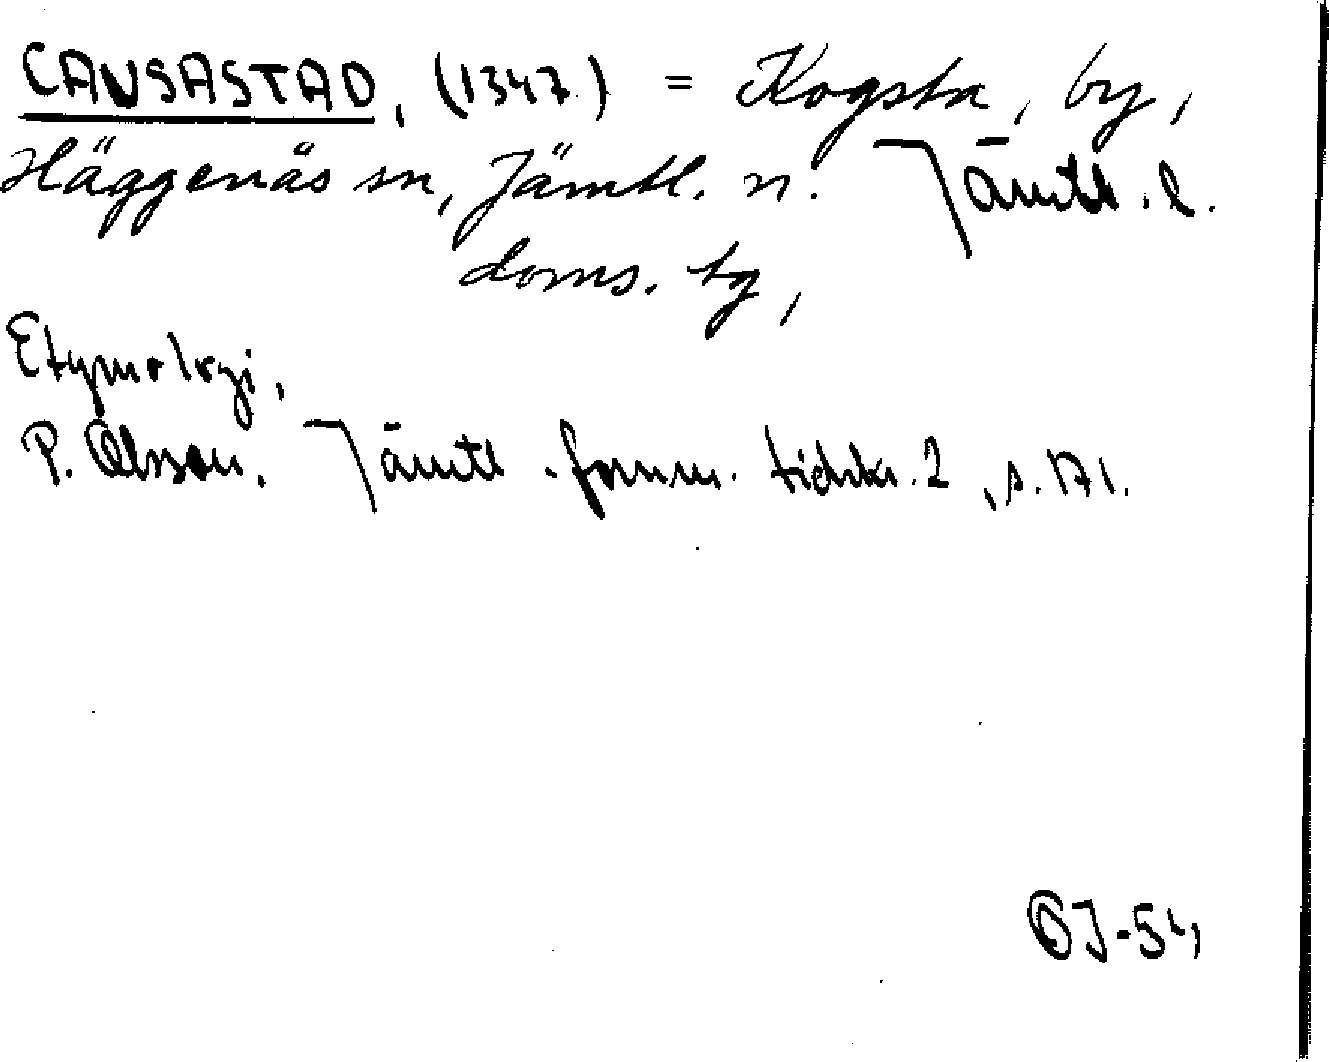 CAUSASTAD, (1347) = Kogsta, by,
Häggenås sn, Jämtl. n. Jämtl. l.
doms. tg,
Etymologi,
P. Olsson. Jämtl. fornm. tidskr. 2, s. 171.
OJ-54,